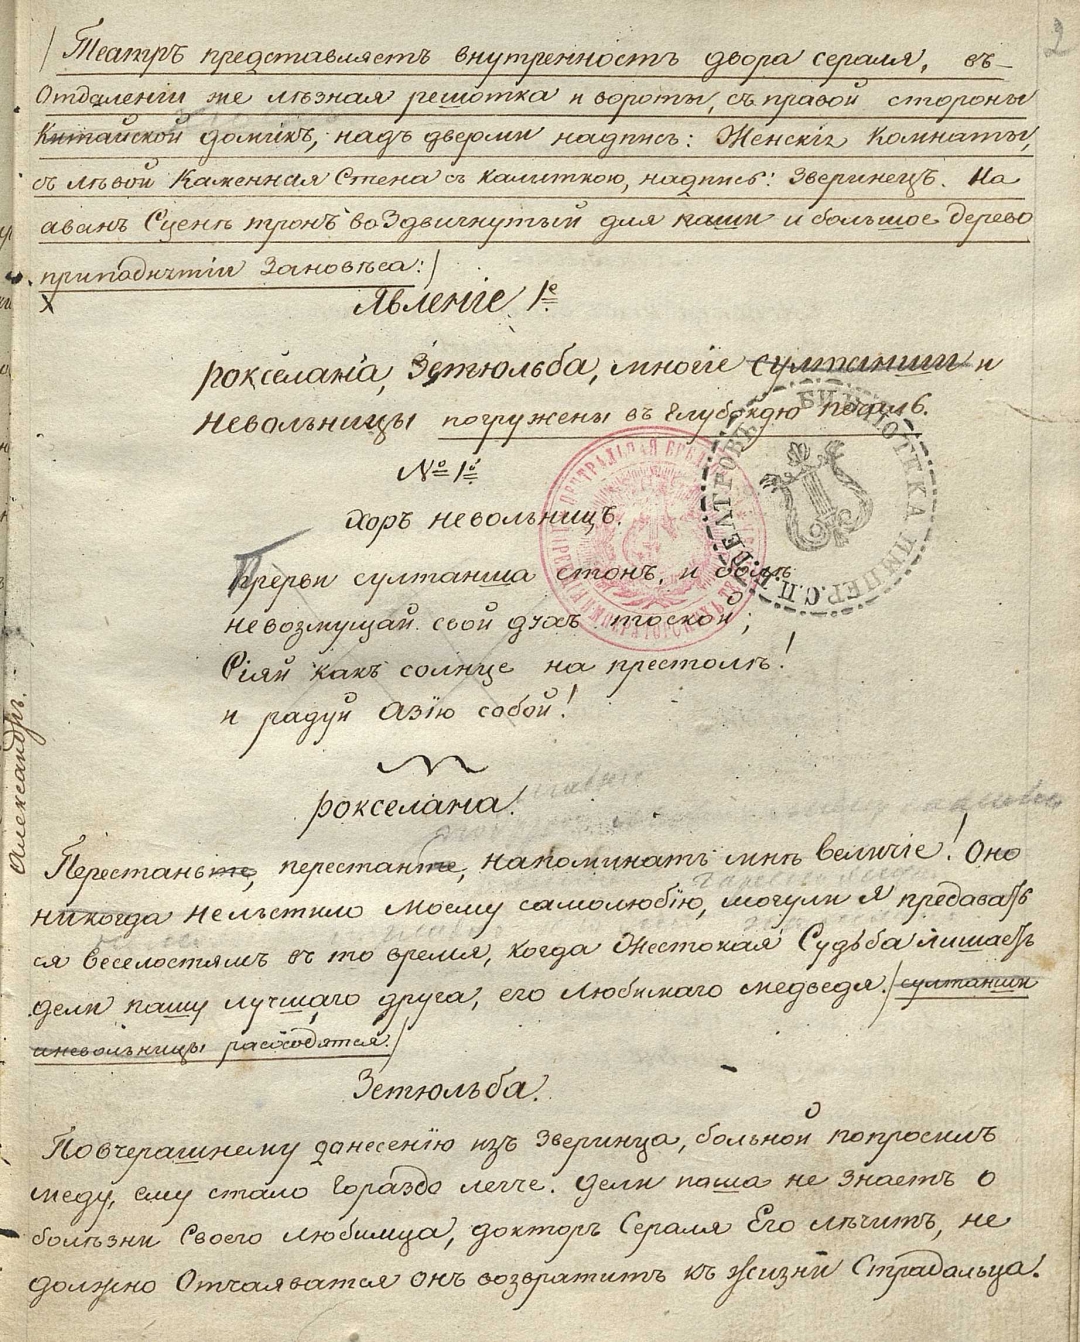 2
/ Театръ представляетъ внутренность двора сераля, въ
Отдаленіи же лѣзная решотка и вороты, съ правой стороны
Китайской домикъ, надъ дверми надпись: Женскіе Комнаты,
съ лѣвой Каменная Стена съ калиткою, надпись: Зверинецъ. На
аванъ Сценѣ тронъ воздвигнутый для паши и большое дерево
приподнятіи Зановѣса: /
Х
Явленіе 1е
рокселана, Зетюльба, многіе султанши и
невольницы погружены въ глубокую печаль.
№ 1о
Хоръ невольницъ.
Прерви султанша стонъ, и болѣ
невозмущай свой духъ тоской;
Сіяй какъ солнце на престолѣ!
и радуй Азію собой!
рокселана.
Перестаньте, перестаньте, напоминать мнѣ величіе! Оно
никогда нельстило моему самолюбію, могули я предавать
ся веселостямъ въ то время, когда Жестокая Судьба лишаетъ
дели пашу лучшаго друга, его любимаго медведя. / султанши
и невольницы расходятся. /
Зетюльба.
Повчерашнему донесенію изъ Зверинца, больной попросилъ
меду, ему стало Гораздо легче. дели паша не знаетъ о
болѣзни Своего любимца, докторъ Сераля Его лѣчитъ, не
должно Отчаяватся онъ возвратитъ къ жизни Страдальца.
Александръ.
БИБЛІОТЕКА ИМПЕР. С.П.Б. ТЕАТРОВЪ